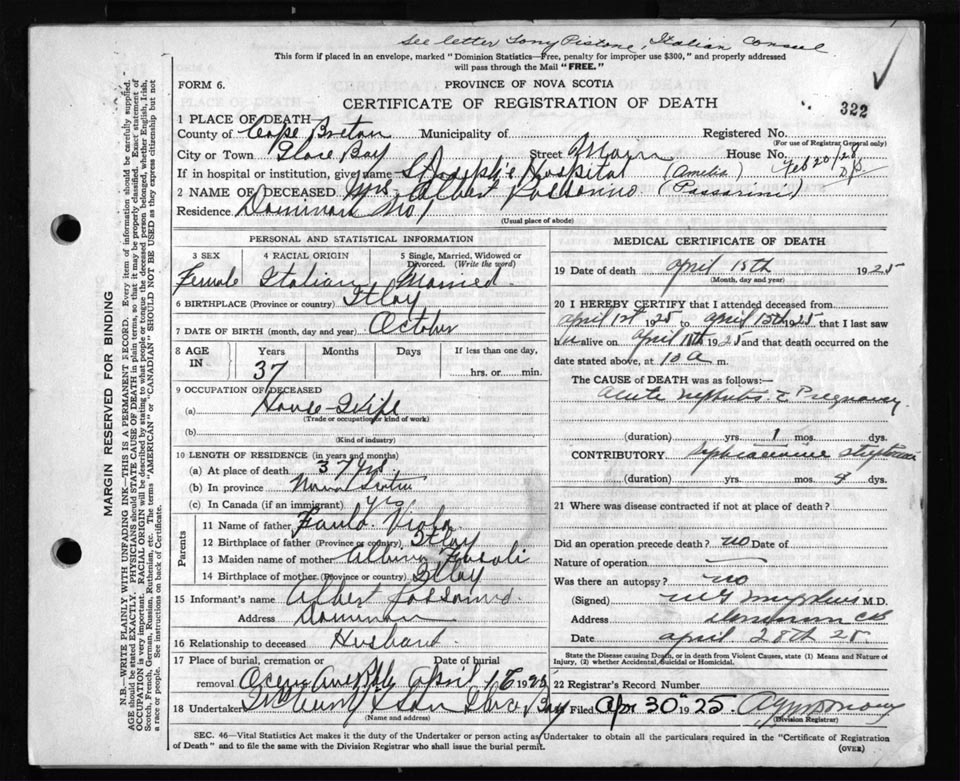 See letter Tony Pistone, Italian Consul
This form if placed in an envelope, marked "Dominion Statistics—Free, penalty for improper use $300," and properly addressed
will pass through the Mail "FREE."
FORM 6.
PROVINCE OF NOVA SCOTIA
CERTIFICATE OF REGISTRATION OF DEATH
322
1 PLACE OF DEATH
County of Cape Breton Municipality of Registered No.
(For use of Registrar General only)
City or Town Glace Bay Street Main House No.
Feb 20/28
If in hospital or institution, give name St Joseph's Hospital (Amelia)
2 NAME OF DECEASED Mrs. Albert (Passarini)
Residence Dominion No 1
(Usual place of abode)
PERSONAL AND STATISTICAL INFORMATION
3 SEX 4 RACIAL ORIGIN 5 Single, Married, Widowed or
Divorced. (Write the word)
Female Italian Married.
6 BIRTHPLACE (Province or country) Italy
7 DATE OF BIRTH (month, day and year) October
8 AGE IN Years Months Days If less than one day,
37 hrs. or min.
9 OCCUPATION OF DECEASED
(a) House-Wife
(Trade or occupation or kind of work)
(b)
(Kind of industry)
10 LENGTH OF RESIDENCE (in years and months)
(a) At place of death 37 Yrs
(b) In province Nova Scotia
(c) In Canada (if an immigrant) Yes
Parents
11 Name of father Viola
12 Birthplace of father (Province or country) Italy
13 Maiden name of mother
14 Birthplace of mother (Province or country) Italy
15 Informant's name Albert
Address Dominion
16 Relationship to deceased Husband.
17 Place of burial, cremation or Date of burial
removal Ocean Ave April 1925
18 Undertaker & Son Glace Bay
(Name and address)
MEDICAL CERTIFICATE OF DEATH
19 Date of death April 15th 1925
(Month, day and year)
20 I HEREBY CERTIFY that I attended deceased from
April 1st 1925 to April 15th 1925 that I last saw
h alive on April 1925 and that death occurred on the
date stated above, at 10 a m.
The CAUSE of DEATH was as follows:—
Acute Nephritis & Pregnancy
(duration) yrs. 1 mos. dys.
CONTRIBUTORY
(duration) yrs. mos. dys.
21 Where was disease contracted if not at place of death?
Did an operation precede death? no Date of
Nature of operation —
Was there an autopsy? no
(Signed) M.D.
Address Dominion CB
Date April 28th 25
State the Disease causing Death, or in death from Violent Causes, state (1) Means and Nature of
Injury, (2) whether Accidental, Suicidal or Homicidal.
22 Registrar's Record Number
Filed Apr 30 1925
(Division Registrar)
SEC. 46—Vital Statistics Act makes it the duty of the Undertaker or person acting as Undertaker to obtain all the particulars required in the "Certificate of Registration
of Death" and to file the same with the Division Registrar who shall issue the burial permit.
(OVER)
MARGIN RESERVED FOR BINDING
N.B.—WRITE PLAINLY WITH UNFADING INK—THIS IS A PERMANENT RECORD. Every item of information should be carefully supplied.
AGE should be stated EXACTLY. PHYSICIANS should STATE CAUSE OF DEATH in plain terms, so that it may be properly classified. Exact statement of
OCCUPATION is very important. RACIAL ORIGIN will be described by stating to what people or tongue the deceased person belonged, whether English, Irish,
Scotch, French, German, Russian, Ruthenian, etc. The terms "AMERICAN" or "CANADIAN" SHOULD NOT BE USED as they express citizenship but not
a race or people. See instructions on back of Certificate.